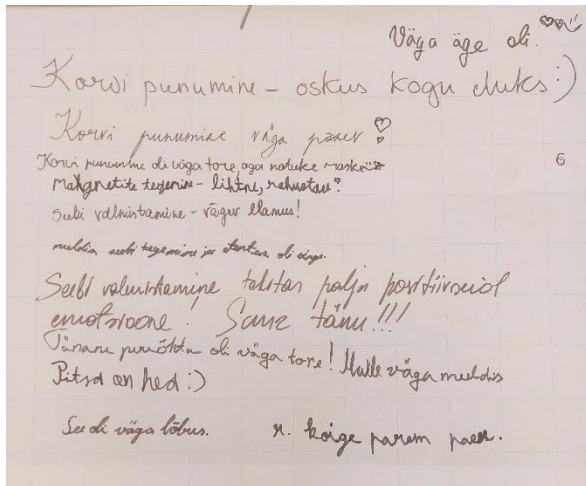 Väga äge oli. ♡♡☺
Korvi punumine – oskus kogu eluks :)
Korvi punumine väga pänev
Korvi punumine oli väga tore, aga natuke raske
Mahgnetite tegemine – lihtne, rahustav
Seebi valmistamine – vägev elamus!
meeldis seebi tegemine ja oli
Seebi valmistamine tekitas palju positiivseid
emotsioone! Suur tänu!!!
Tänane oli väga tore! Mulle väga meeldis
Pitsa on hea :)
See oli väga lõbus.
kõige parem päev.
6